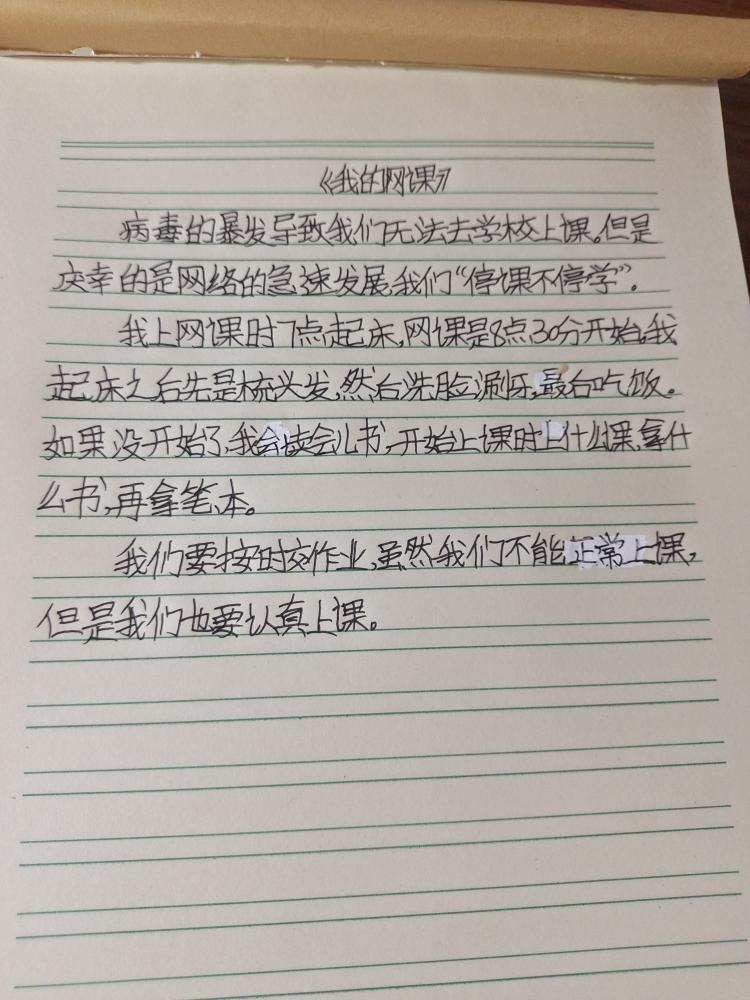 《我的网课》
病毒的暴发导致我们无法去学校上课。但是
庆幸的是网络的急速发展,我们“停课不停学”。
我上网课时7点起床,网课是8点30分开始。我
起床之后先是梳头发,然后洗脸涮牙,最后吃饭。
如果没开始了,我会读会儿书,开始上课时上什么课,拿什
么书,再拿笔、本。
我们要按时交作业,虽然我们不能正常上课,
但是我们也要认真上课。